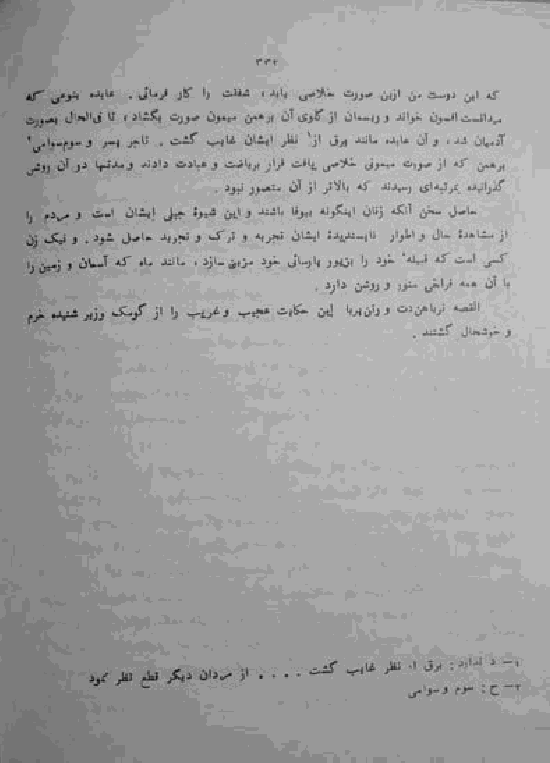 ۳۳۲
که این دوست من ازین صورت خلاصی یابد، شفقت را کار فرمائی. عابده بنوعی که
میدانست افسون خواند و ریسمان از گلوی آن برهمن میمون صورت بگشاد، تا فی‌الحال بصورت
آدمیان شد، و آن عابده مانند برق از¹ نظر ایشان غایب گشت. تاجر پسر و سوم‌سوامی²
برهمن که از صورت میمونی خلاصی یافت قرار بریاضت و عبادت دادند و مدتها در آن روش
گذرانیده بمرتبه‌ای رسیدند که بالاتر از آن متصور نبود.
حاصل سخن آنکه زنان اینگونه بیوفا باشند و این شیوهٔ جبلی ایشان است و مردم را
از مشاهدهٔ حال و اطوار ناپسندیدهٔ ایشان تجربه و ترک و تجرید حاصل شود. و نیک زن
کسی است که قبیلهٔ خود را بزیور پارسائی خود مزین سازد، مانند ماه که آسمان و زمین را
با آن همه فراخی منور و روشن دارد.
القصه نرباهن‌دت و این حکایت عجیب و غریب را از گومک وزیر شنیده خرم
و خوشحال گشتند.
۱- د ندارد: برق از نظر غایب گشت .... از مردان دیگر قطع نظر نمود
۲- ح: سوم و سوامی